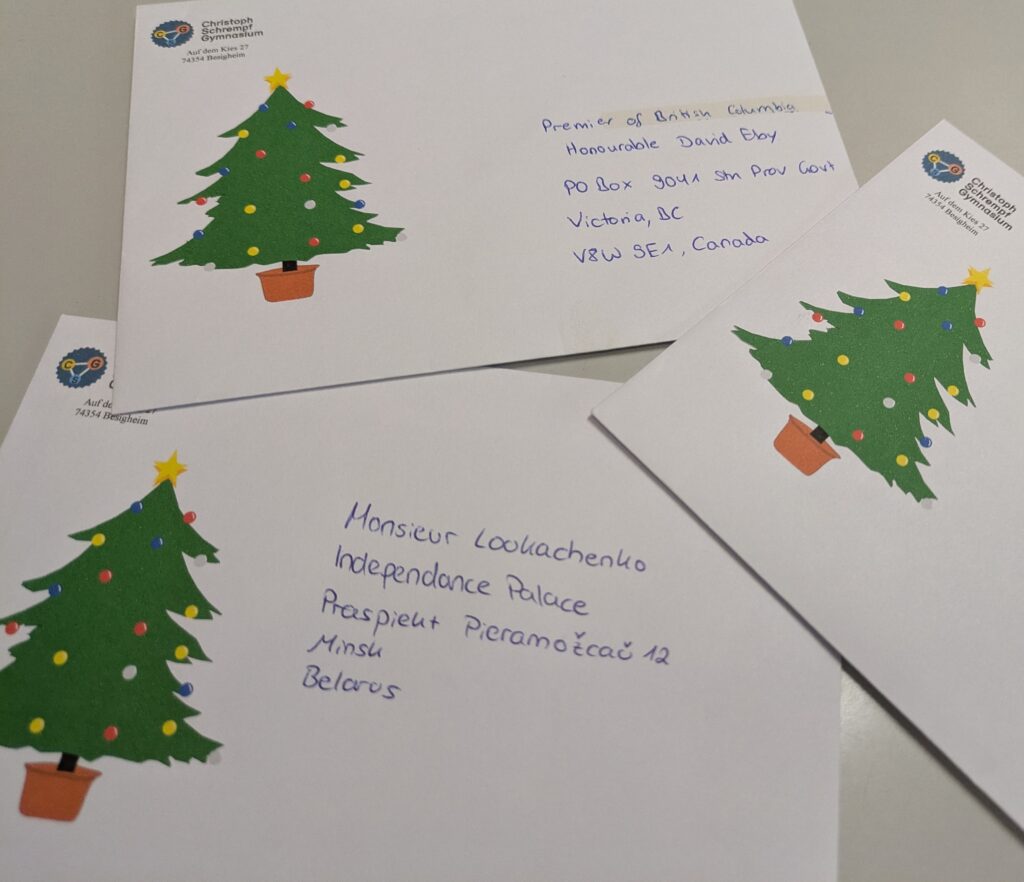 Christoph
Schrempf
Gymnasium
Auf dem Kies 27
74354 Besigheim
Premier of British Columbia
Honourable David Eby
PO Box 9041 Stn Prov Govt
Victoria, BC
V8W 9E1, Canada
C G S
Christoph
Schrempf
Gymnasium
Auf dem Kies 27
74354 Besigheim
C G S
Auf de
74354 Besigheim
Monsieur Lookachenko
Independance Palace
Praspiekt Pieramožcaŭ 12
Minsk
Belarus